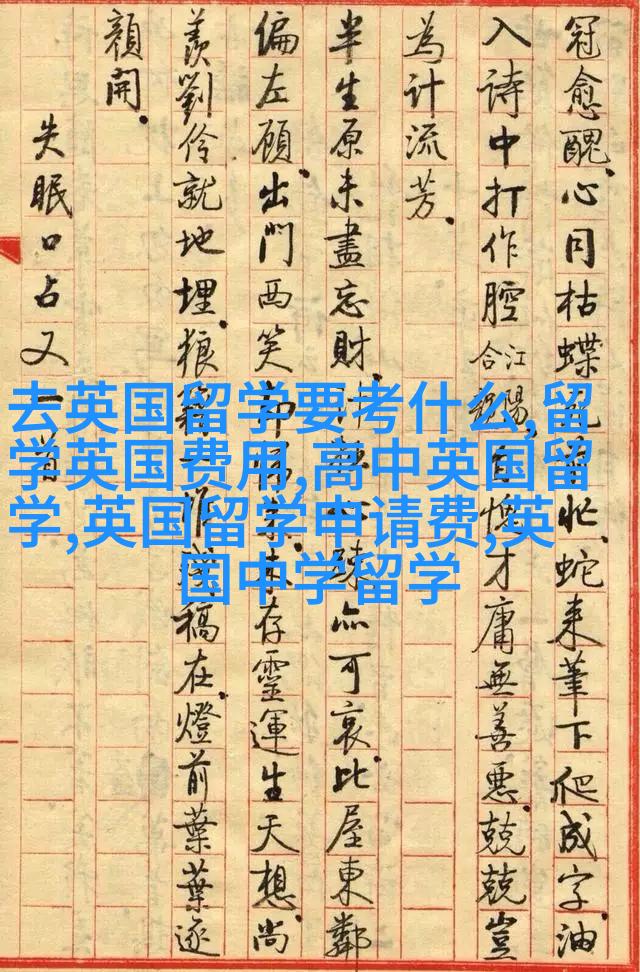 冠愈醜。心同枯蝶忙。蛇来筆下爬成字。油
入詩中打作腔合江陽。自愧才庸無善惡。兢兢豈
為計流芳。
半生原未盡忘財。計疎亦可哀。比屋東鄰
偏左顧。出門西笑存靈運生天想。尚
羨劉伶就地埋。狼籍稿在。燈前葉葉逐
顏開。
失眠口占又一首
去英国留学要考什么,留
学英国费用,高中英国留
学,英国留学申请费,英
国中学留学